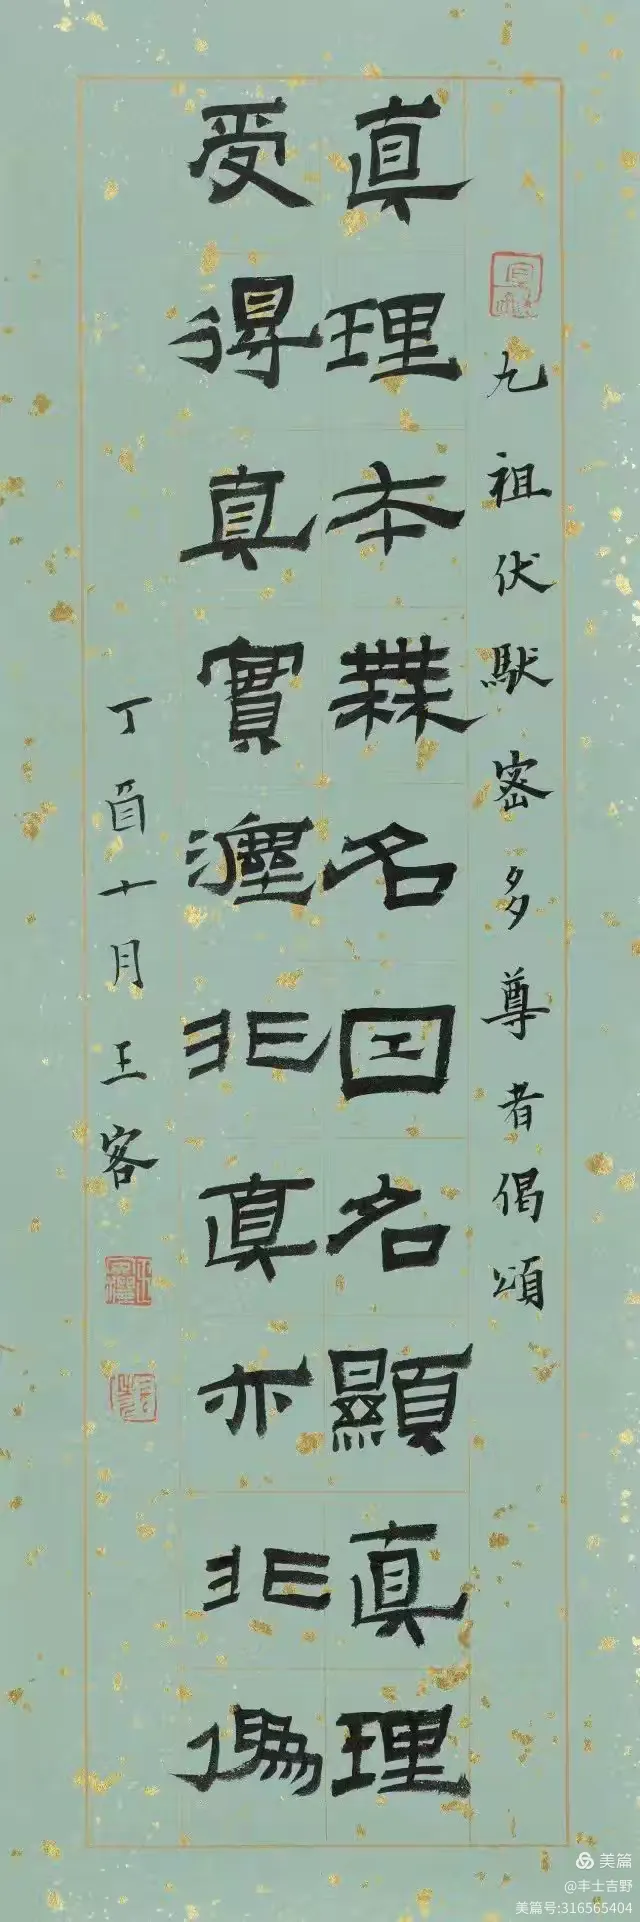 九祖伏馱密多尊者偈頌
真理本無名囙名顯真理
受得真實灋非真亦非偽
丁酉十月王客
美篇
@丰士吉野
美篇号:316565404